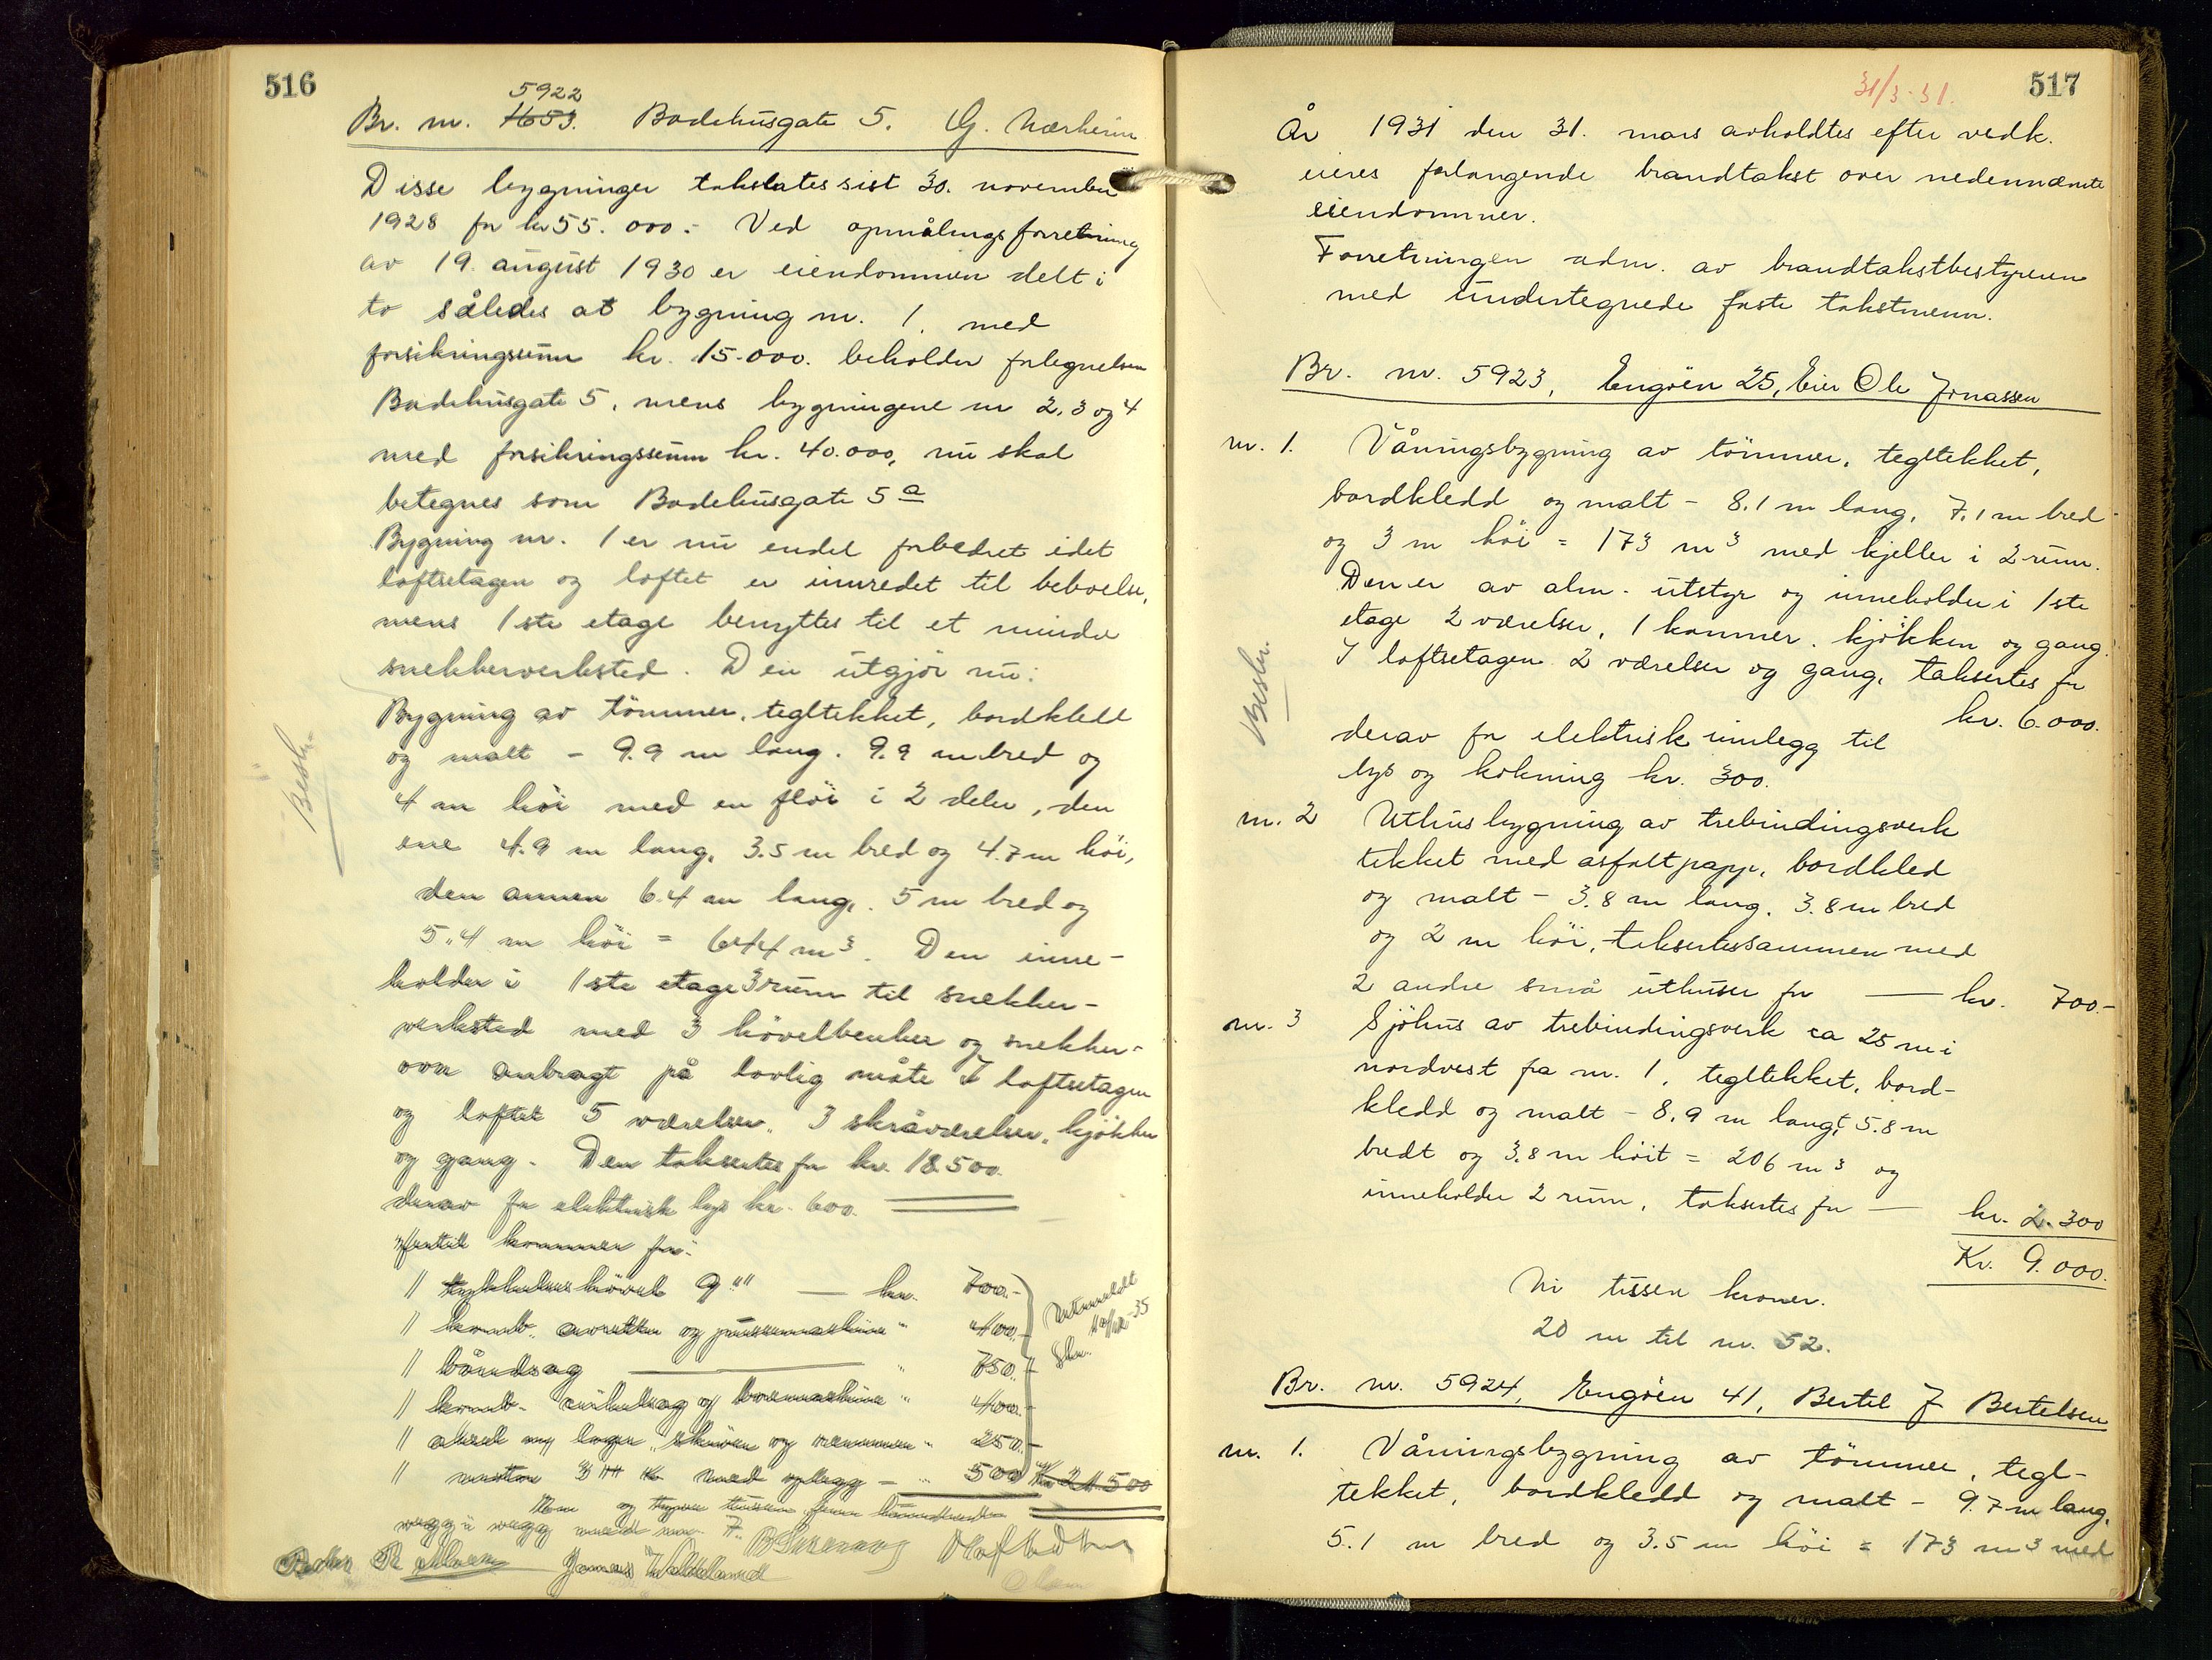 516
5922
Br. nr. 1653. Badehusgate 5. G. Nærheim
Disse bygninger takstates sist 30. november
1928 for kr 55.000.- Ved opmålingsforretning
av 19. august 1930 er eiendommen delt i
to således at bygning nr. 1. med
forsikringssum kr. 15.000. beholder forlegnelsen
Badehusgate 5, mens bygningene nr 2, 3 og 4
med forsikringssum kr. 40.000, nu skal
betegnes som Badehusgate 5 a
Bygning nr. 1 er nu endel forbedret idet
loftsetagen og loftet er innredet til beboelse,
mens 1ste etage benyttes til et mindre
snekkerverksted. Den utgjör nu:
Bygning av tömmer, tegltekket, bordkledd
og malt - 9.9 m lang. 9.9 m bred og
4 m höi med en flöi i 2 deler, den
ene 4.9 m lang, 3.5 m bred og 4.7 m höi,
den annen 6.4 m lang, 5 m bred og
5.4 m höi = 644 m3. Den inne-
holder i 1ste etage 3 rum til snekker-
verksted med 3 hövelbenker og snekker-
ovn anbragt på lovlig måte I loftsetagen
og loftet 5 værelser, 3 skråværelser, kjökken
og gang. Den taksertes for kr. 18.500.
derav for elektrisk lys kr. 600.
Hertil kommer for:
1 hövel 9"" — kr. 700.-
1 komb. avretter og maskine " 400.-
1 båndsag " 750.-
1 komb. sirkelsag og boremaskine " 400.-
1 aksel m/ lager, skiver og remmer " 250.-
1 motor 3 HK med oplegg - " 500 Kr 21.500
Utmeldt
-35
Besk.
vegg i vegg med nr. 7.
517
31/3-31.
År 1931 den 31. mars avholdtes efter vedk.
eieres forlangende brandtakst over nedennævnte
eiendommer.
Forretningen adm. av brandtakstbestyreren
med undertegnede faste takstmenn.
Br. nr. 5923, Engöen 25, Eier Ole Jonassen
nr. 1. Våningsbygning av tömmer, tegltekket,
bordkledd og malt - 8.1 m lang, 7.1 m bred
og 3 m höi = 173 m3 med kjeller i 2 rum.
Den er av alm. utstyr og inneholder i 1ste
etage 2 værelser, 1 kammer, kjökken og gang.
I loftsetagen 2 værelser og gang, taksertes for
kr. 6.000.
derav for elektrisk innlegg til
lys og kokning kr. 300.
Besk.
nr. 2 Uthusbygning av trebindingsverk
tekket med asfaltpapp, bordkled
og malt - 3.8 m lang, 3.8 m bred
og 2 m höi, taksertes sammen med
2 andre små uthuser for — kr. 700.-
nr. 3 Sjöhus av trebindingsverk ca 25 m i
nordvest fra nr. 1, tegltekket, bord-
kledd og malt - 8.9 m langt, 5.8 m
bredt og 3.8 m höit = 206 m3 og
inneholder 2 rum, taksertes for — kr. 2.300
Kr. 9.000.
Ni tusen kroner.
20 m til nr. 52.
Br. nr. 5924, Engöen 41, Bertel J Bertelsen
nr. 1. Våningsbygning av tömmer, tegl-
tekket, bordkledd og malt - 9.7 m lang,
5.1 m bred og 3.5 m höi = 173 m3 med